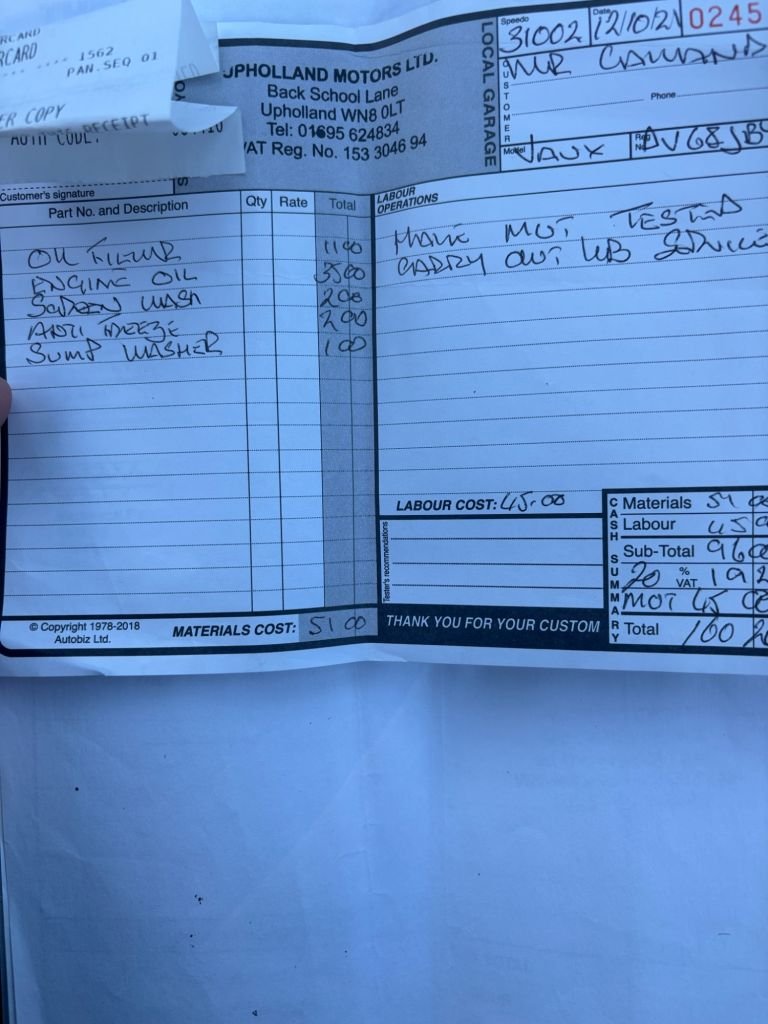 RCARD
RCARD
1562
PAN.SEQ 01
ER COPY
RECEIPT
AUTH CODE:
UPHOLLAND MOTORS LTD.
Back School Lane
Upholland WN8 0LT
Tel: 01695 624834
VAT Reg. No. 153 3046 94
LOCAL GARAGE
Speedo 31002 Date 12/10/21 0245
CUSTOMER
MR
Phone
Model VAUX Reg No. AV68JB
Customer's signature
Part No. and Description Qty Rate Total
OIL FILTER 11 00
ENGINE OIL 35 00
SCREEN WASH 2 00
ANTI FREEZE 2 00
SUMP WASHER 1 00
MATERIALS COST: 51 00
© Copyright 1978-2018
Autobiz Ltd.
LABOUR OPERATIONS
HAVE MOT TESTED
CARRY OUT SERVICE
LABOUR COST: 45-00
Tester's recommendations
THANK YOU FOR YOUR CUSTOM
CASH SUMMARY
Materials 51 00
Labour 45 0
Sub-Total 96 00
20 % VAT 19 2
MOT 45 00
Total 160 20